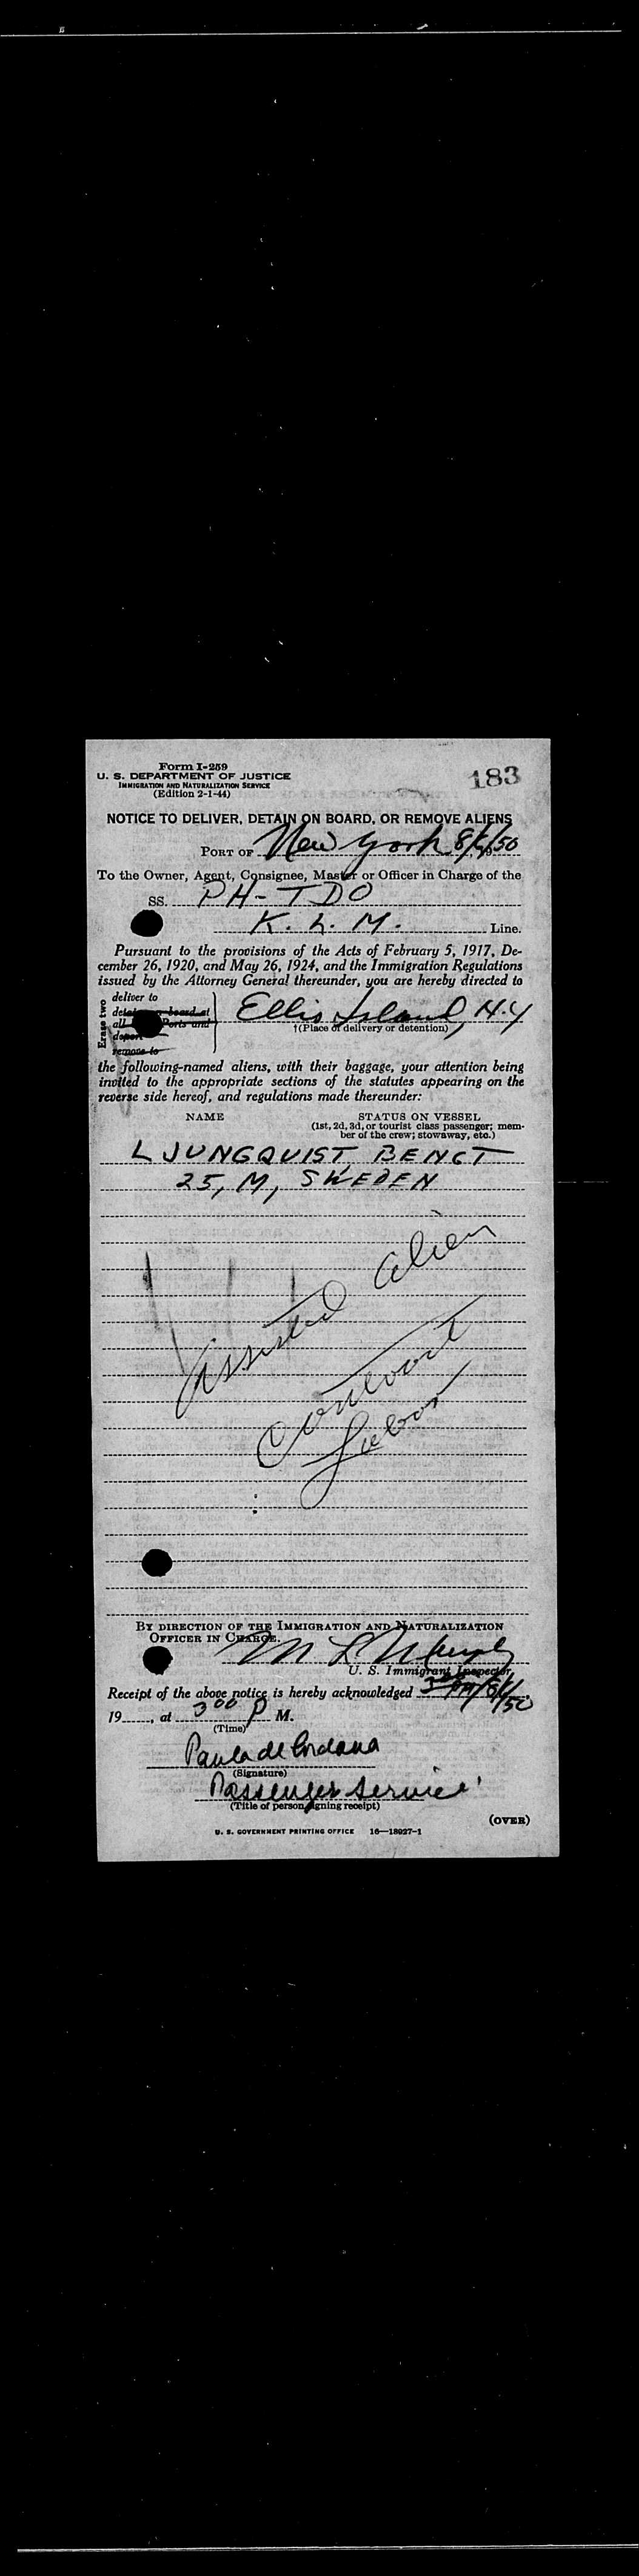 Form I-259
U. S. DEPARTMENT OF JUSTICE
IMMIGRATION AND NATURALIZATION SERVICE
(Edition 2-1-44)
183
NOTICE TO DELIVER, DETAIN ON BOARD, OR REMOVE ALIENS
PORT OF New York 8/6/50
To the Owner, Agent, Consignee, Master or Officer in Charge of the
SS. PH-TDO
K. L. M. Line.
Pursuant to the provisions of the Acts of February 5, 1917, De-
cember 26, 1920, and May 26, 1924, and the Immigration Regulations
issued by the Attorney General thereunder, you are hereby directed to
Erase two
deliver to
detain on board at
all Ports and
deport
remove to
Ellis Island, N.Y
†(Place of delivery or detention)
the following-named aliens, with their baggage, your attention being
invited to the appropriate sections of the statutes appearing on the
reverse side hereof, and regulations made thereunder:
NAME
STATUS ON VESSEL
(1st, 2d, 3d, or tourist class passenger; mem-
ber of the crew; stowaway, etc.)
LJUNGQUIST BENGT
25, M, SWEDEN
Assisted alien
Contract
Labor
BY DIRECTION OF THE IMMIGRATION AND NATURALIZATION
OFFICER IN CHARGE.
M L Murphy
U. S. Immigrant Inspector.
Receipt of the above notice is hereby acknowledged 8/6/50
19......, at 3 00 P M.
(Time)
Paula de Cordova
(Signature)
Passenger Service
(Title of person signing receipt)
(OVER)
U. S. GOVERNMENT PRINTING OFFICE 16—18027-1